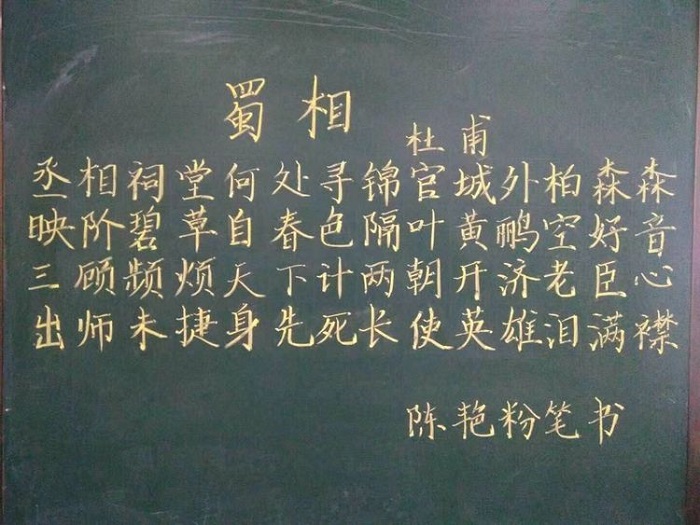 蜀相
杜甫
丞相祠堂何处寻锦官城外柏森森
映阶碧草自春色隔叶黄鹂空好音
三顾频烦天下计两朝开济老臣心
出师未捷身先死长使英雄泪满襟
陈艳粉笔书